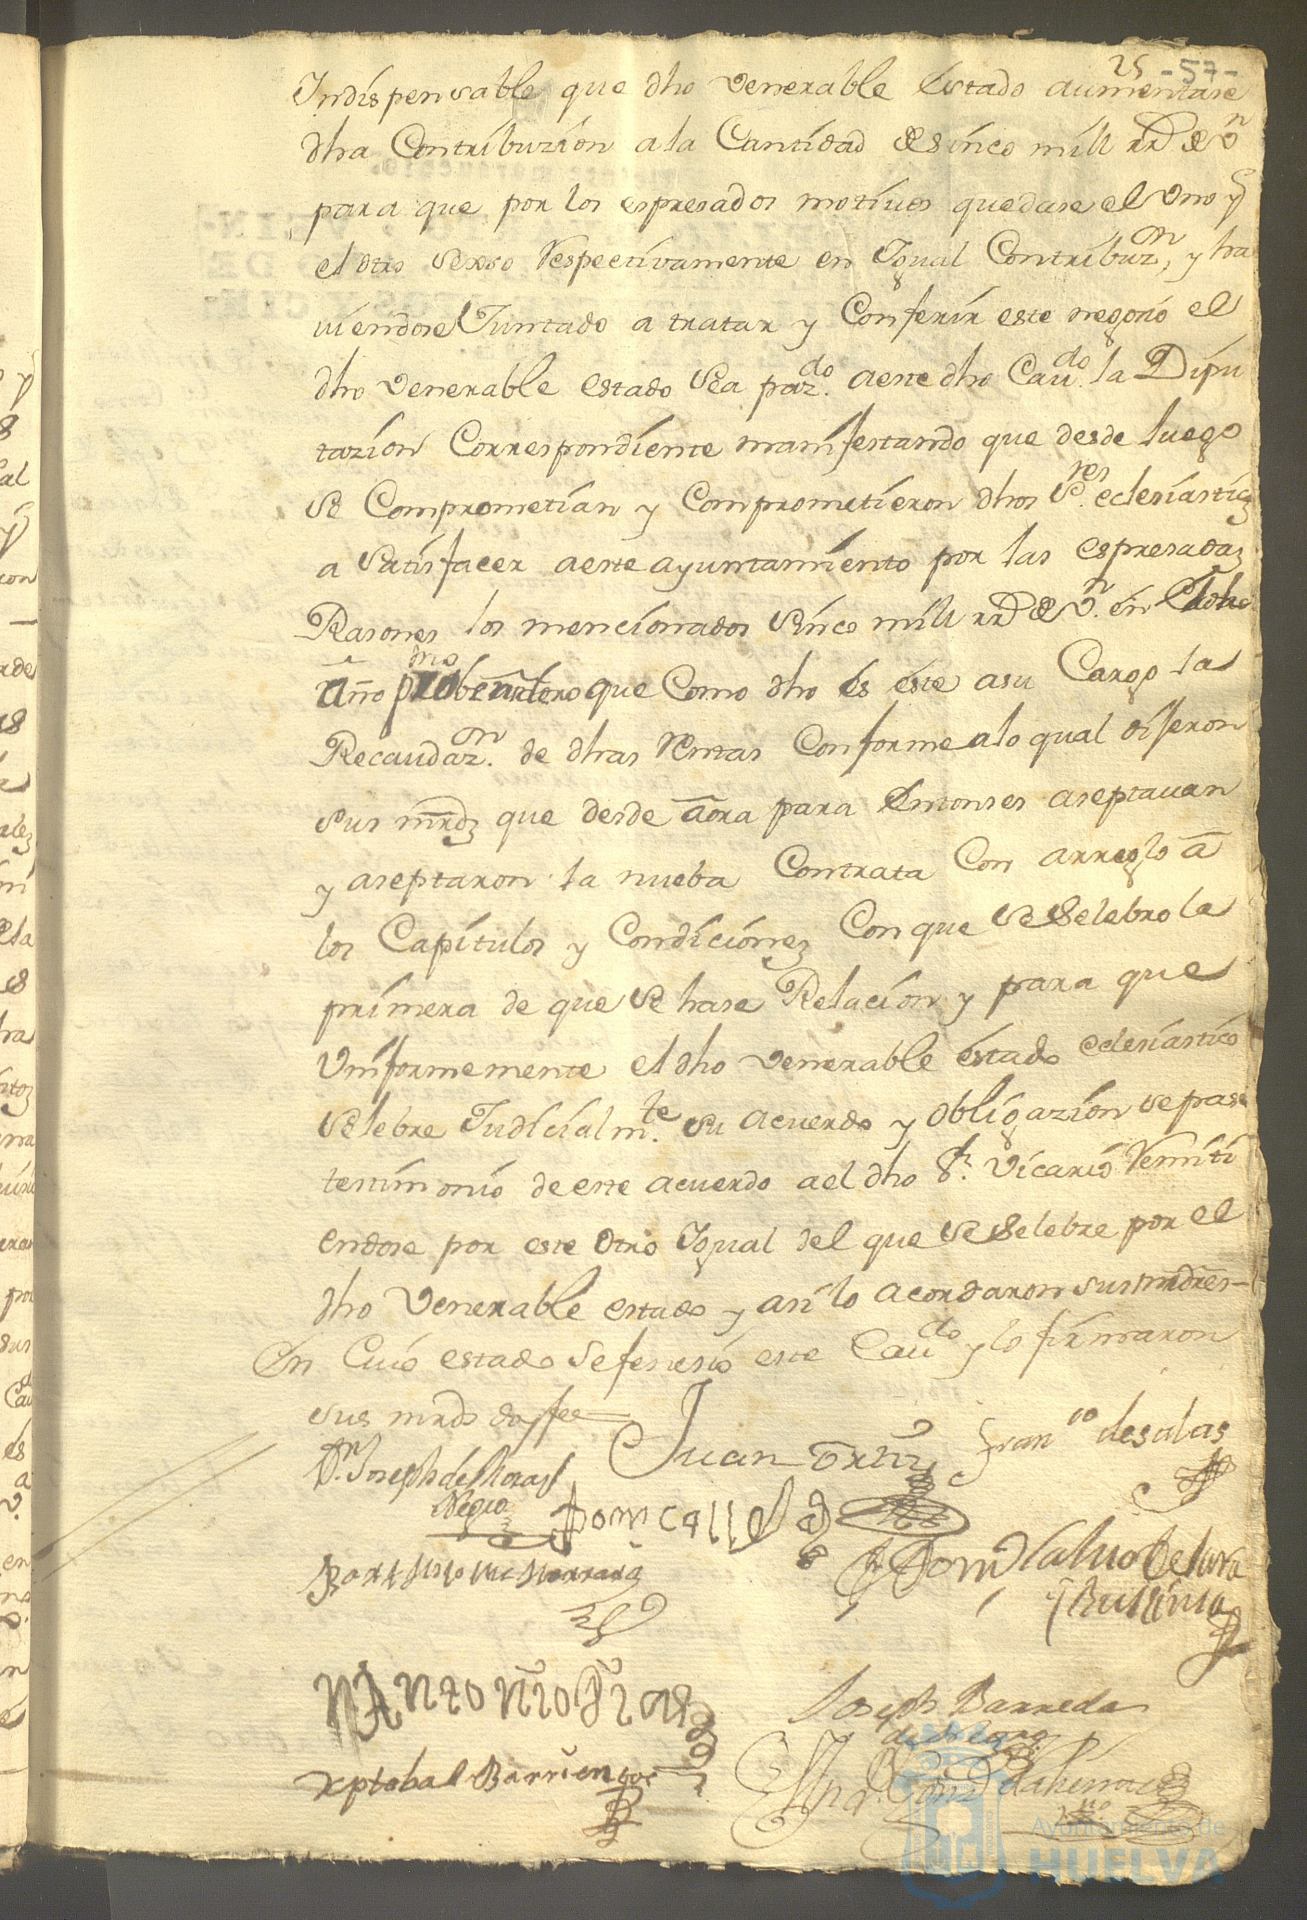 25 -57-
Indispensable que dho Venerable Estado aumentase
dha Contribuzion a la Cantidad de sinco mill rr.s de v.n
para que por los espresados motivos quedase el Uno y
el otro sexso Respectivamente en Igual Contribuz.on, y ha
viendose Juntado a tratar y Conferir este negosio el
dho Venerable estado Sea paz.do a este dho Cau.do la Dipu
tazion Correspondiente manifestando que desde luego
se Comprometian y Comprometieron dhos S.res eclesiasticz
a Satisfacer a este ayuntamiento por las espresadaz
Rasones los mencionados Sinco mill rr.s de v.n en
año que Como dho es este a su Cargo la
Recaudaz.on de dhas Rentas Conforme a lo qual dijeron
sus mrdz que desde aora para Entonses aseptavan
y aseptaron la nueba Contrata Con arreglo a
los Capitulos y Condicionez Con que se Selebro la
primera de que se hase Relacion y para que
Uniformemente el dho Venerable estado eclesiastico
Selebre Judicialm.te su acuerdo y obligazion se pase
testimonio de este acuerdo a el dho S.r Vicario Remiti
endose por este Otro Igual del que se Selebre por el
dho Venerable estado y asi lo acordaron sus mrdes-
En Cuio estado se fenesio este Cau.do y lo firmaron
sus mrds doy fee
D.n Joseph de
Negro
Juan Ortiz
Fran.co de salas
Dom
Barttolome
Antonio Dias
Joseph Barreda
Xptobal Barrientos
Ayuntamiento de
HUELVA